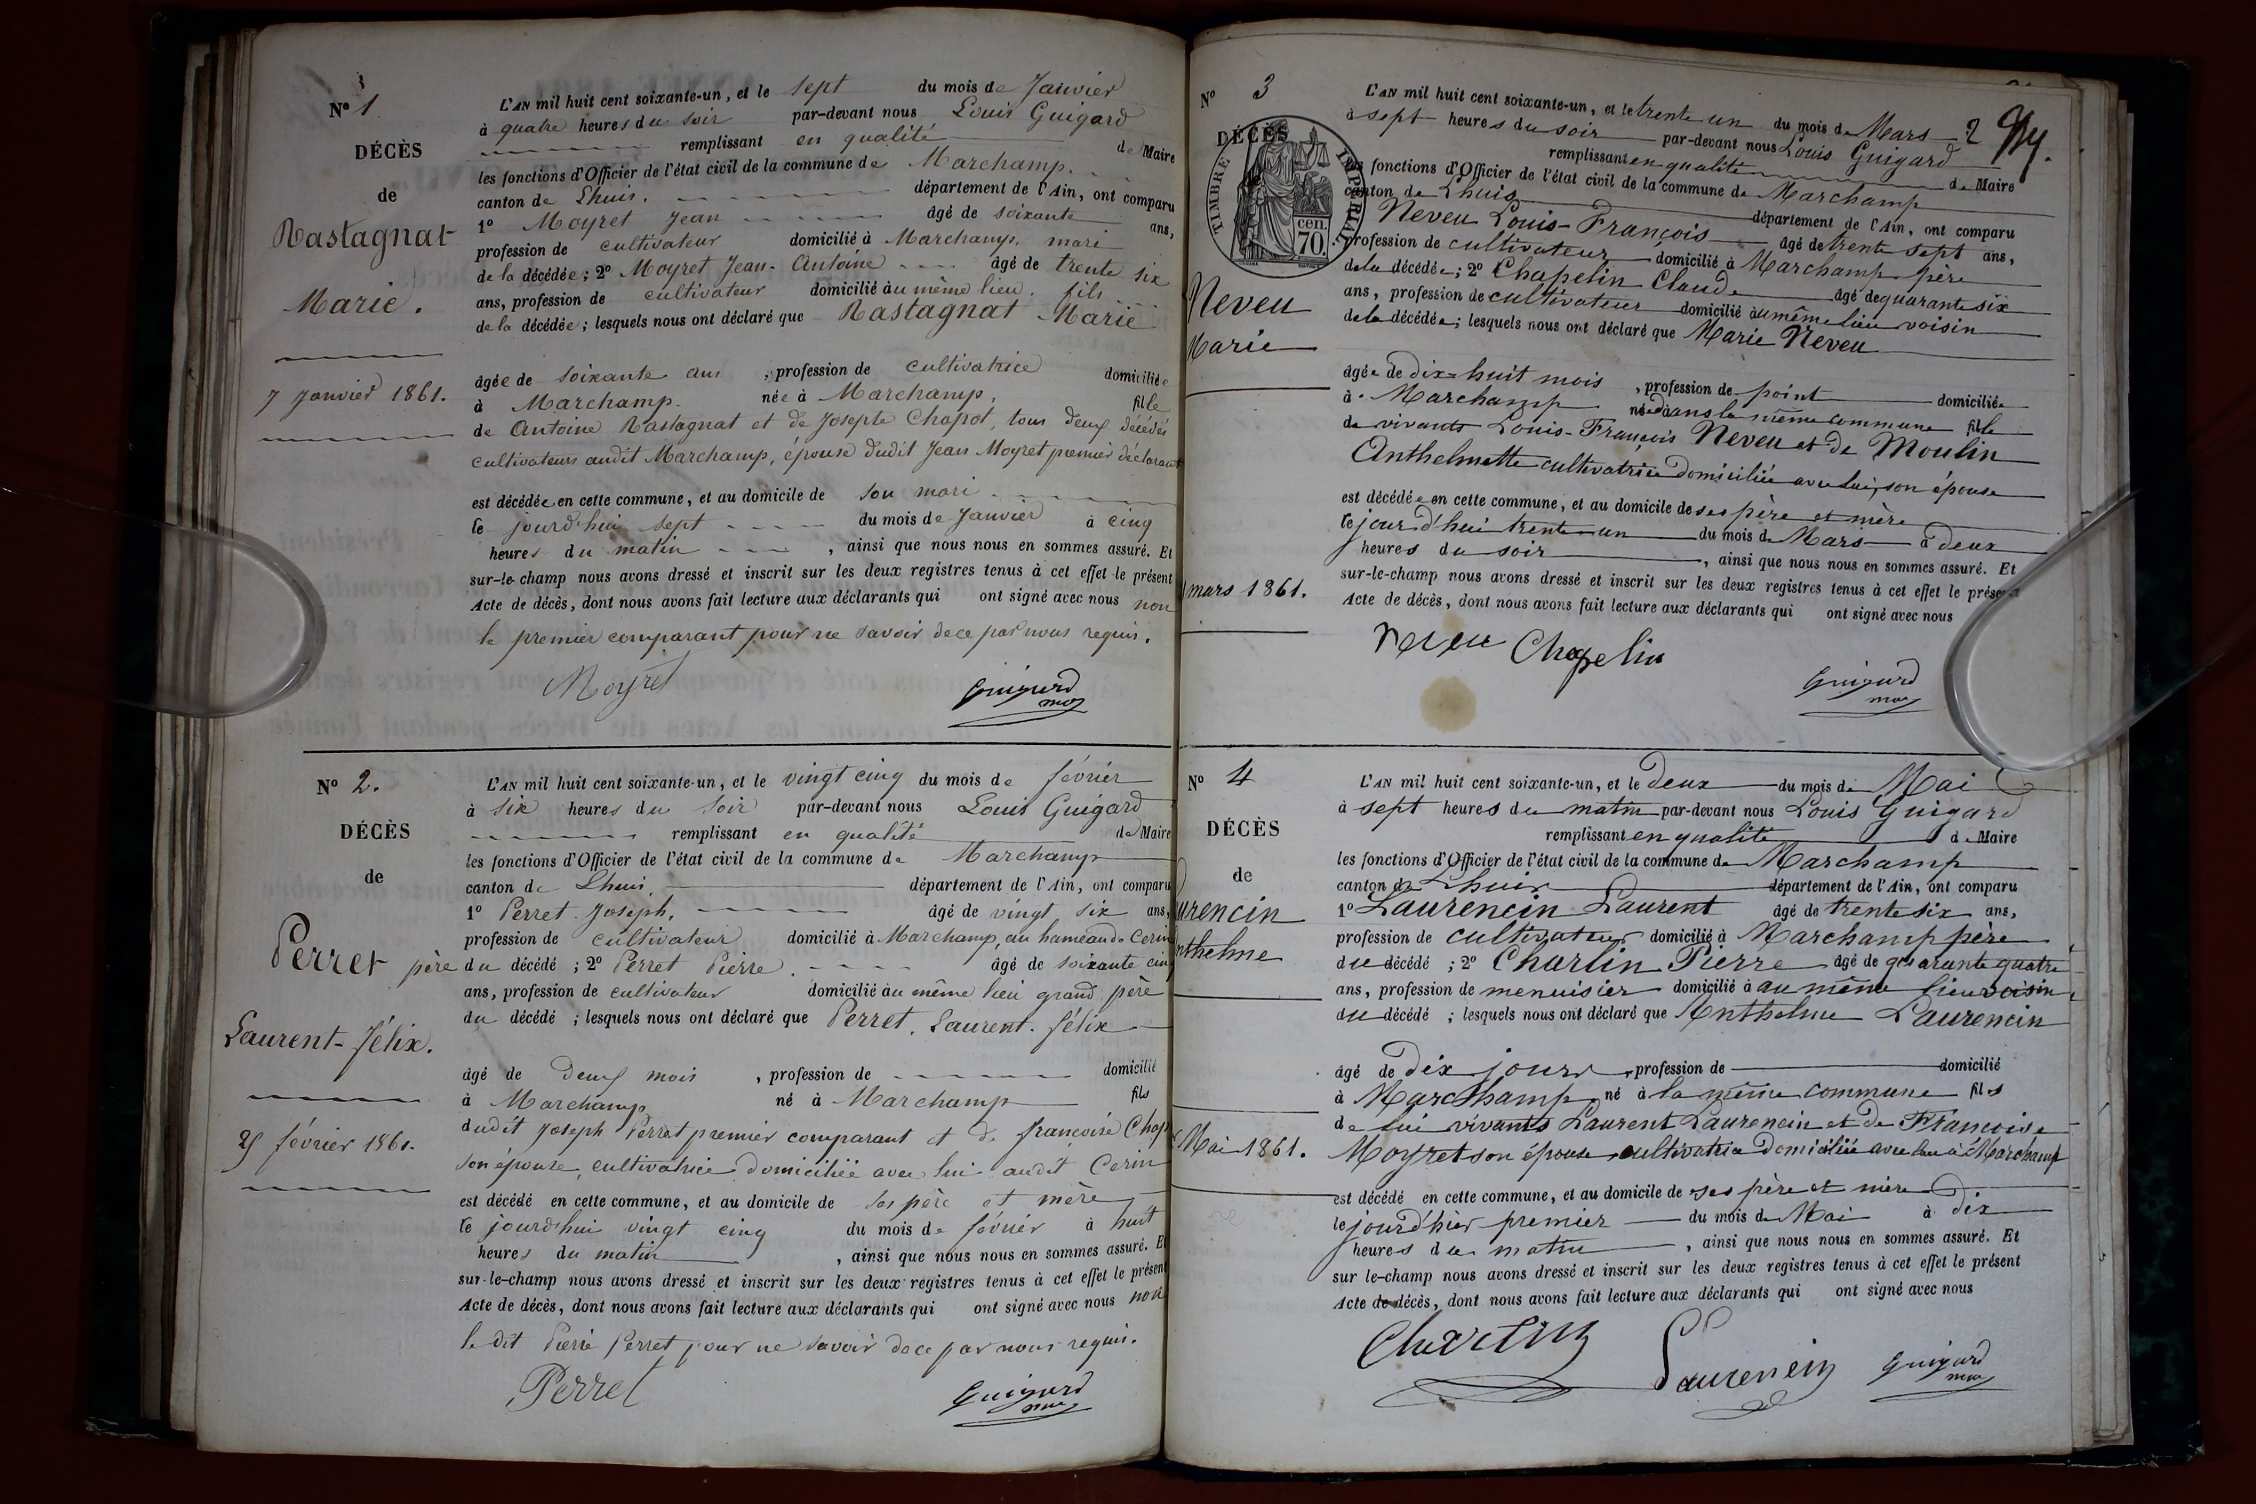 N° 1
DÉCÈS
de
Rastagnat
Marie.
7 Janvier 1861.
L'AN mil huit cent soixante-un, et le sept du mois de Janvier
à quatre heures du soir par-devant nous Louis Guigard
remplissant en qualité de Maire
les fonctions d'Officier de l'état civil de la commune de Marchamp.
canton de Lhuis. département de l'Ain, ont comparu
1° Moyret Jean âgé de soixante ans,
profession de cultivateur domicilié à Marchamp, mari
de la décédée ; 2° Moyret Jean-Antoine âgé de trente six
ans, profession de cultivateur domicilié au même lieu, fils
de la décédée ; lesquels nous ont déclaré que Rastagnat Marie
âgée de soixante ans , profession de cultivatrice domiciliée
à Marchamp. née à Marchamp, fille
de Antoine Rastagnat et de Josepte Chapot, tous deux décédés
cultivateurs audit Marchamp, épouse dudit Jean Moyret premier déclarant
est décédée en cette commune, et au domicile de son mari
le jourd'hui sept du mois de Janvier à cinq
heures du matin , ainsi que nous nous en sommes assuré. Et
sur-le-champ nous avons dressé et inscrit sur les deux registres tenus à cet effet le présent
Acte de décès, dont nous avons fait lecture aux déclarants qui ont signé avec nous non
le premier comparant pour ne savoir de ce par nous requis.
Moyret Guigard
N° 2.
DÉCÈS
de
Perret
Laurent-félix.
25 février 1861.
L'AN mil huit cent soixante-un, et le vingt cinq du mois de février
à six heures du soir par-devant nous Louis Guigard
remplissant en qualité de Maire
les fonctions d'Officier de l'état civil de la commune de Marchamp
canton de Lhuis. département de l'Ain, ont comparu
1° Perret Joseph, âgé de vingt six ans,
profession de cultivateur domicilié à Marchamp, au hameau de Cerin
père du décédé ; 2° Perret Pierre. âgé de soixante cinq
ans, profession de cultivateur domicilié au même lieu grand père
du décédé ; lesquels nous ont déclaré que Perret. Laurent. félix
âgé de deux mois , profession de domicilié
à Marchamp né à Marchamp fils
dudit Joseph Perret premier comparant et de françoise
son épouse, cultivatrice domiciliée avec lui audit Cerin
est décédé en cette commune, et au domicile de ses père et mère
le jourd'hui vingt cinq du mois de février à huit
heures du matin , ainsi que nous nous en sommes assuré. Et
sur-le-champ nous avons dressé et inscrit sur les deux registres tenus à cet effet le présent
Acte de décès, dont nous avons fait lecture aux déclarants qui ont signé avec nous non
le dit Pierre Perret pour ne savoir de ce par nous requis.
Perret Guigard
N° 3
DÉCÈS
TIMBRE IMPÉRIAL
70. cen.
Neveu
Marie
mars 1861.
L'AN mil huit cent soixante-un, et le trente un du mois de Mars 2
à sept heures du soir par-devant nous Louis Guigard
remplissant en qualité de Maire
les fonctions d'Officier de l'état civil de la commune de Marchamp
canton de Lhuis département de l'Ain, ont comparu
Neveu Louis-François âgé de trente sept ans,
profession de cultivateur domicilié à Marchamp père
de la décédée ; 2° Chapelin Claude âgé de quarante six
ans, profession de cultivateur domicilié au même lieu voisin
de la décédée ; lesquels nous ont déclaré que Marie Neveu
âgée de dix-huit mois , profession de point domiciliée
à Marchamp née dans la même commune fille
de vivants Louis-François Neveu et de Moulin
Anthelmette cultivatrice domiciliée avec lui, son épouse
est décédée en cette commune, et au domicile de ses père et mère
le jourd'hui trente un du mois de Mars à deux
heures du soir , ainsi que nous nous en sommes assuré. Et
sur-le-champ nous avons dressé et inscrit sur les deux registres tenus à cet effet le présent
Acte de décès, dont nous avons fait lecture aux déclarants qui ont signé avec nous
neveu Chapelin
Guigard
N° 4
DÉCÈS
de
urencin
nthelme
Mai 1861.
L'AN mil huit cent soixante-un, et le deux du mois de Mai
à sept heures du matin par-devant nous Louis Guigard
remplissant en qualité de Maire
les fonctions d'Officier de l'état civil de la commune de Marchamp
canton de Lhuis département de l'Ain, ont comparu
1° Laurencin Laurent âgé de trente six ans,
profession de cultivateur domicilié à Marchamp père
du décédé ; 2° Charlin Pierre âgé de quarante quatre
ans, profession de menuisier domicilié à au même lieu voisin
du décédé ; lesquels nous ont déclaré que Anthelme Laurencin
âgé de dix jours , profession de domicilié
à Marchamp né à la même commune fils
de lui vivants Laurent Laurencin et de Françoise
Moyret son épouse cultivatrice domiciliée avec lui à Marchamp
est décédé en cette commune, et au domicile de ses père et mère
le jourd'hier premier du mois de Mai à dix
heures du matin , ainsi que nous nous en sommes assuré. Et
sur le-champ nous avons dressé et inscrit sur les deux registres tenus à cet effet le présent
Acte de décès, dont nous avons fait lecture aux déclarants qui ont signé avec nous
Charlin Laurencin Guigard